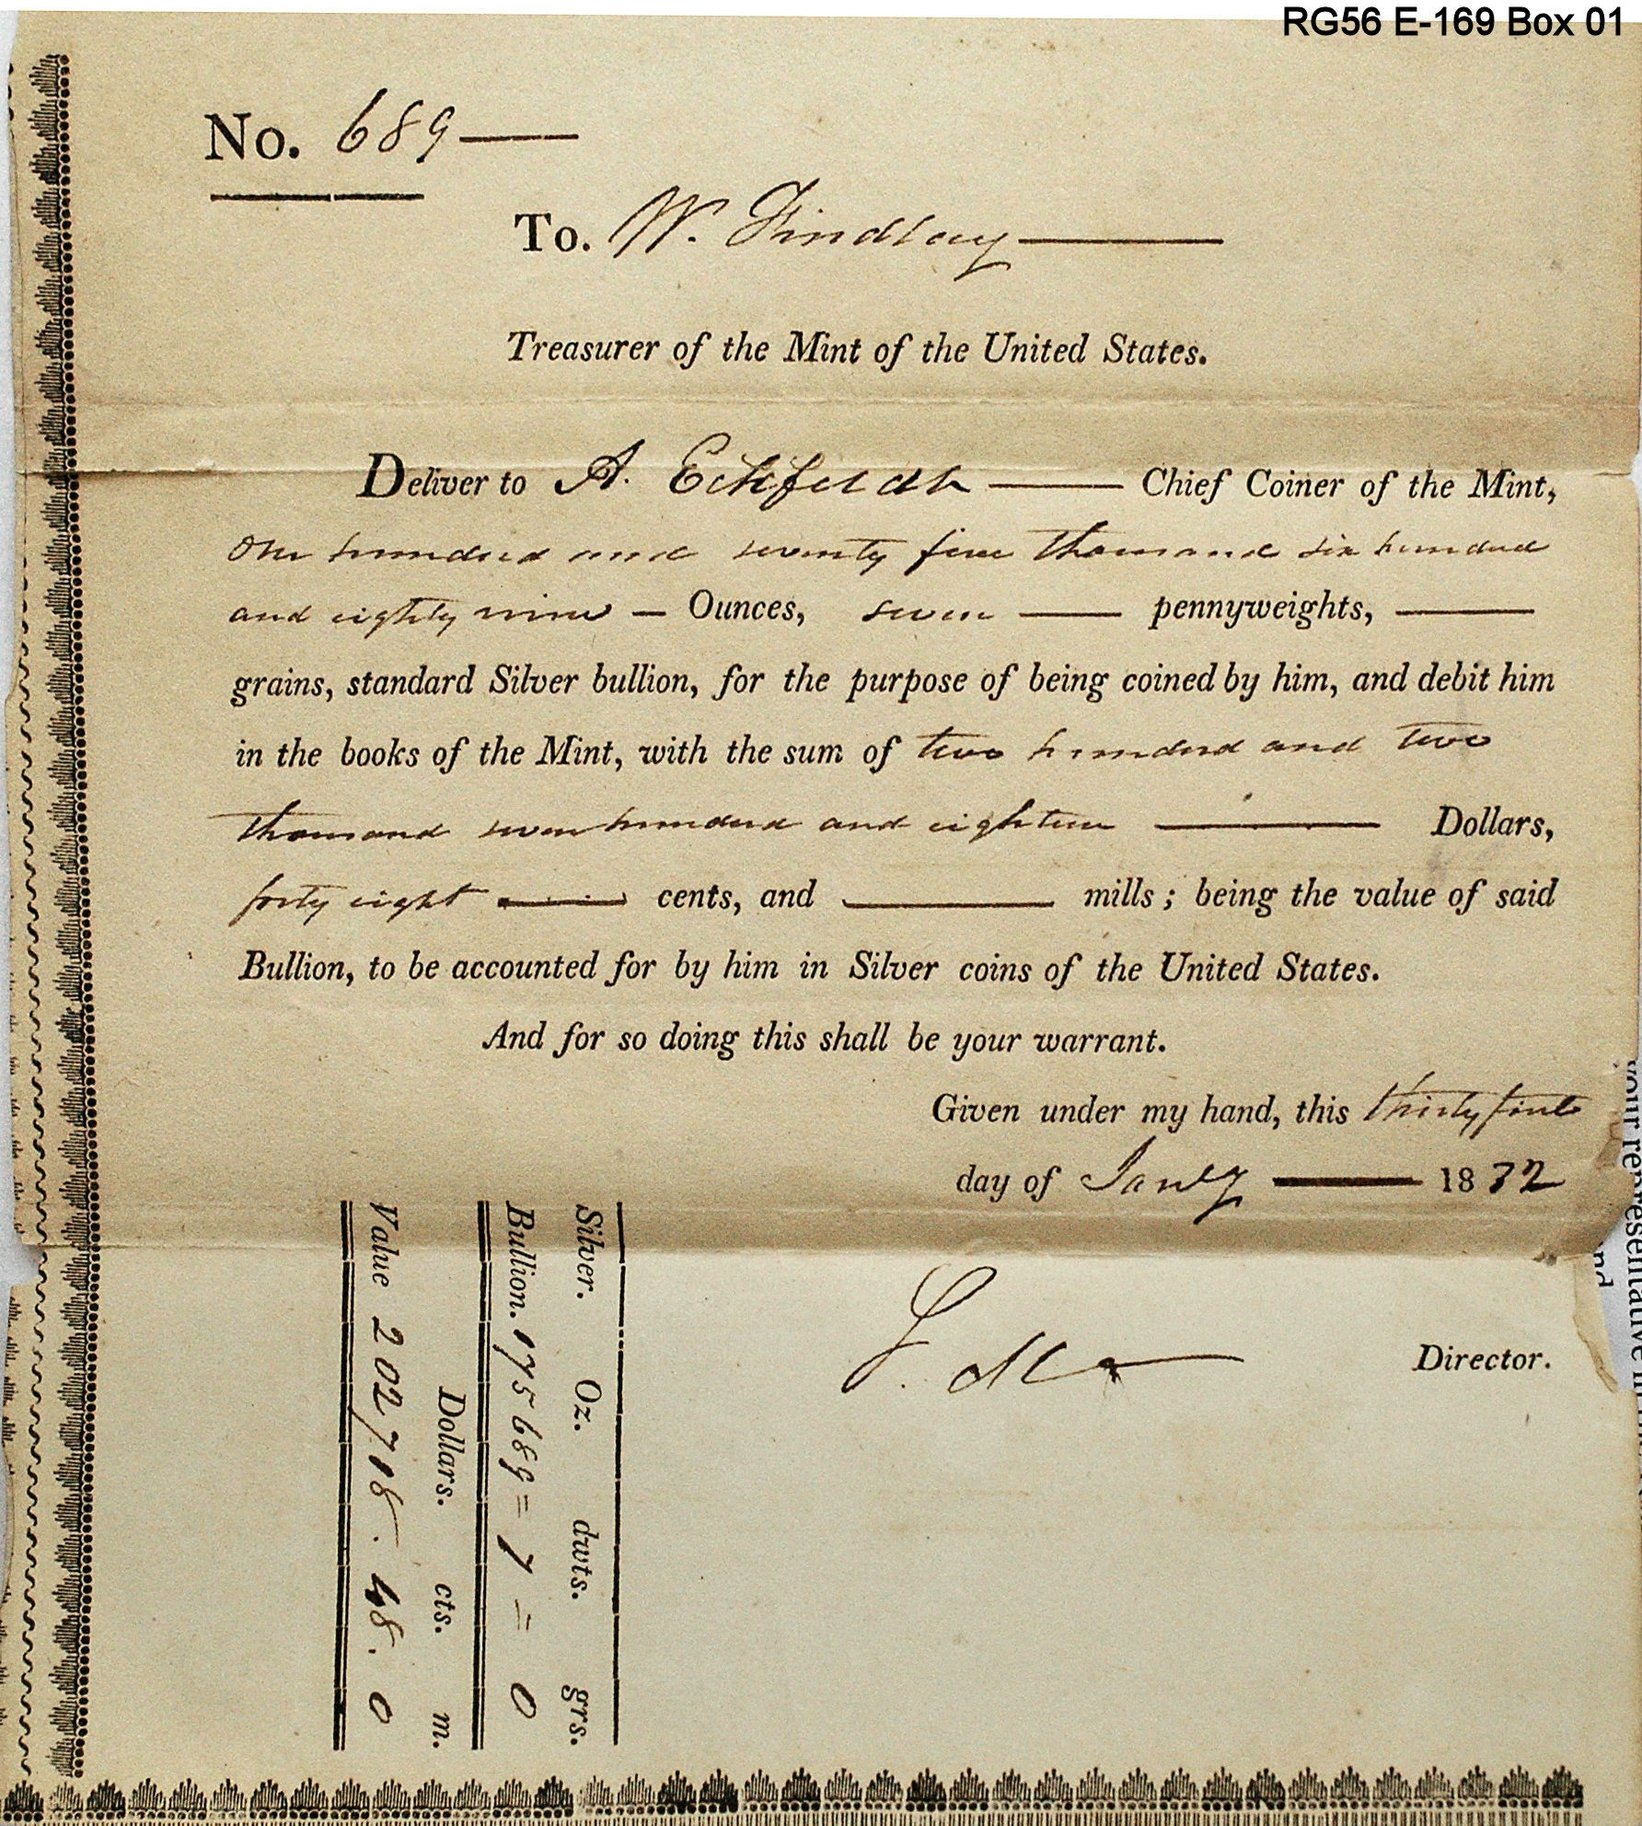 RG56 E-169 Box 01
No. 689
To. W. Findlay
Treasurer of the Mint of the United States.
Deliver to A. Eckfeldt Chief Coiner of the Mint,
One hundred and seventy five thousand six hundred
and eighty nine — Ounces, seven — pennyweights, —
grains, standard Silver bullion, for the purpose of being coined by him, and debit him
in the books of the Mint, with the sum of two hundred and two
thousand seven hundred and eighteen — Dollars,
forty eight — cents, and — mills; being the value of said
Bullion, to be accounted for by him in Silver coins of the United States.
And for so doing this shall be your warrant.
Given under my hand, this thirty first
day of Jany — 1832
Director.
Silver. Oz. dwts. grs.
Bullion. 175689 = 7 = 0
Dollars. cts. m.
Value 202,718. 48. 0
your representative in